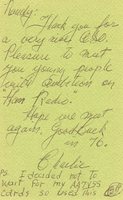 Randy,
Thank you for
a very nice QSO.
Pleasure to meet
you young people
with ambition on
"Ham Radio."
Hope we meet
again. Good Luck
in 76.
Charlie
P.S. I decided not to
wait for my
cards so used this